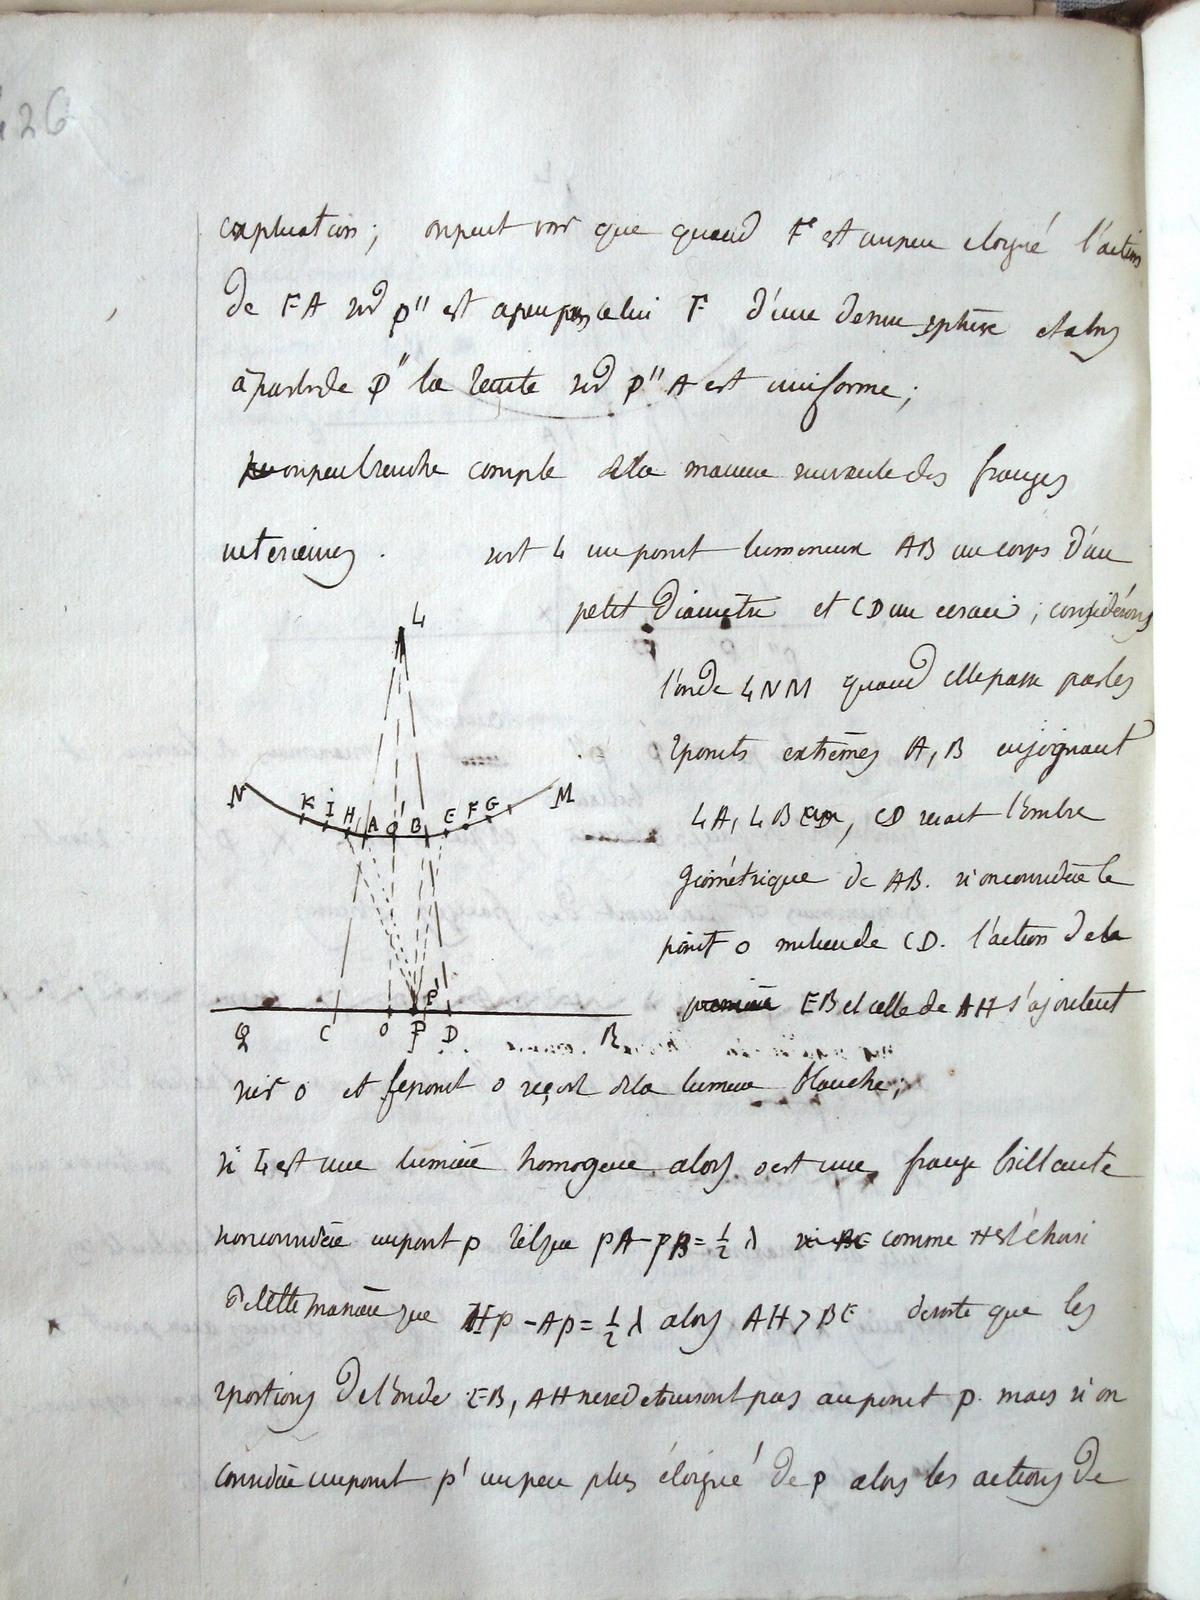 426
explication; on peut voir que quand F est un peu eloigné l'action
de FA sur p'' est a peu pres celui F d'une demie sphère et alors
à partir de P'' la teinte sur p'' A est uniforme;
on peut rendre compte de la maniere suivante des franges
interieures. soit L un point lumineux AB un corps d'un
petit diametre et CD un ecran; considérons
l'onde LNM quand elle passe par les
2 points extrêmes A, B en joignant
LA, LB, CD serait l'ombre
géométrique de AB. si on considère le
point o milieu de CD. l'action de la
premiere EB et celle de AH s'ajoutent
sur o et le point o reçoit de la lumiere blanche;
si L est une lumière homogene alors o est une frange brillante
si on considère un point p tel que pA-pB=½ λ si BE comme H est choisi
de telle manière que Hp - Ap = ½ λ alors AH > BE de sorte que les
2 portions de l'onde EB, AH ne se detruisent pas au point p. mais si on
considère un point p' un peu plus éloigné de p alors les actions de
L
N K I H A O' B E F G M
Q C O P P' D B